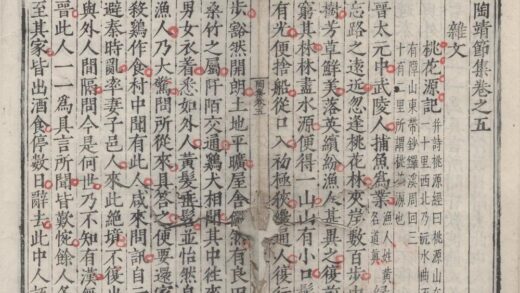 陶靖節集卷之五
雜文
桃花源記
并詩桃源經曰桃源
一十里西北乃沅水曲
有障山東帶鈔鑼溪周回三
十有二里所謂桃花源也
晉太元中武陵人捕魚爲業漁人姓黃名道真
忘路之遠近忽逢桃花林夾岸數百步中
樹芳草鮮美落英繽紛漁人甚異之復前
窮其林林盡水源便得一山山有小口髣
有光便捨船從口入初極狹纔通人復行
陶集卷五
步豁然開朗土地平曠屋舍儼然有良田
桑竹之屬阡陌交通雞犬相聞其中往來
男女衣着悉如外人黃髮垂髫並怡然自
漁人乃大驚問所從來具答之便要還家
殺雞作食村中聞有此人咸來問訊自
避秦時亂率妻子邑人來此絕境不復出
與外人間隔問今是何世乃不知有漢無
晉此人一一爲具言所聞皆歎惋餘人各
至其家皆出酒食停數日辭去此中人語